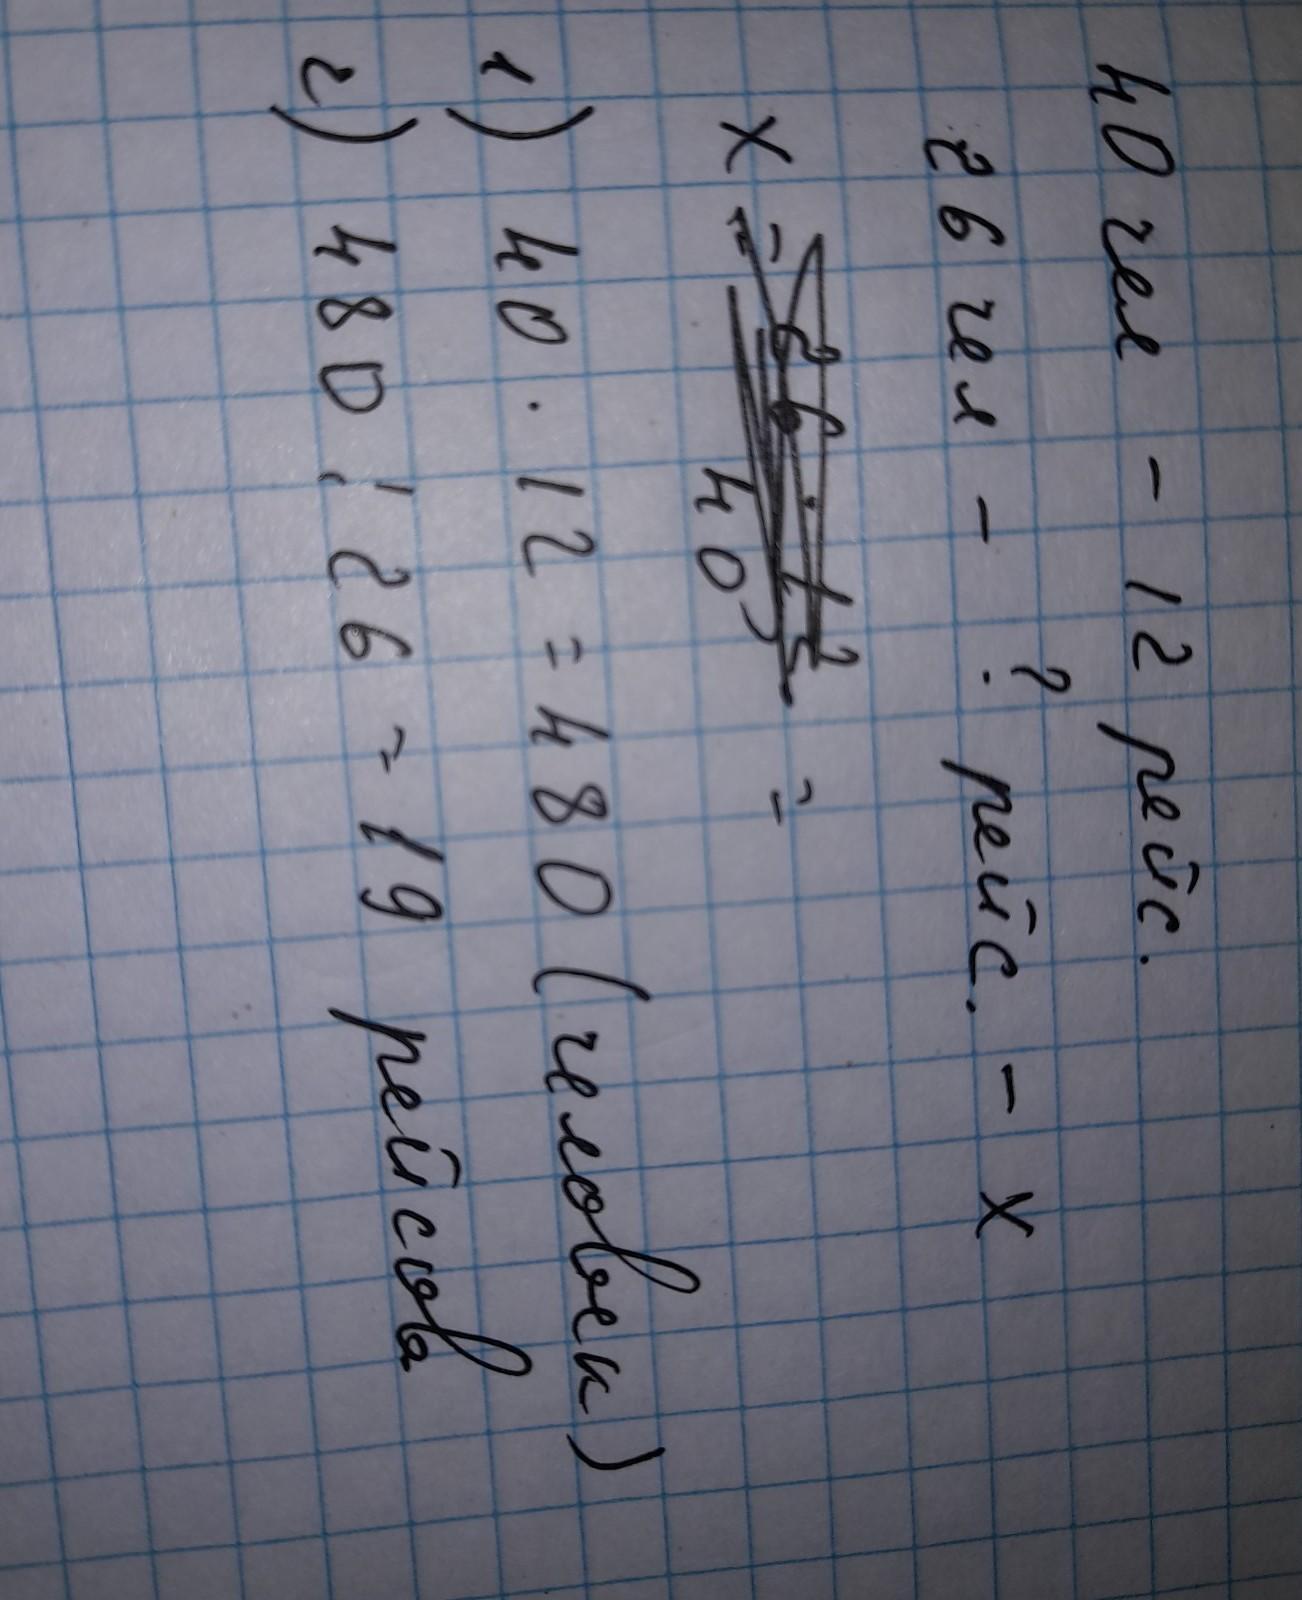 40 чел - 12 рейс.
26 чел - ? рейс. - x
x =
40
=
1) 40 · 12 = 480 (человек)
2) 480 : 26 = 19 рейсов